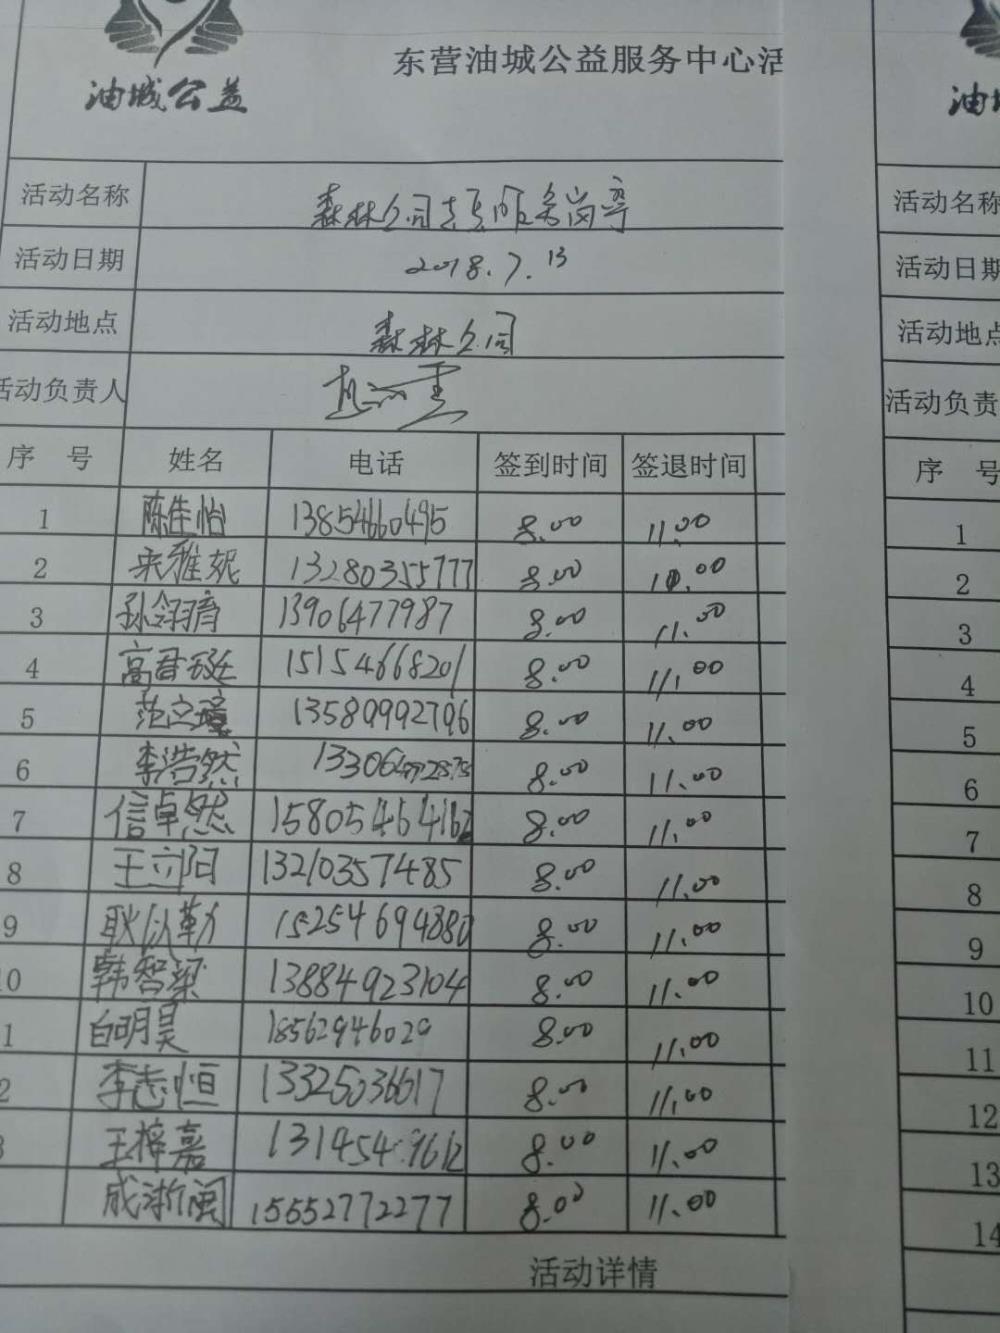 油城公益
东营油城公益服务中心活
活动名称 森林公司志愿服务岗亭
活动日期 2018.7.13
活动地点 森林公司
活动负责人
序 号 姓名 电话 签到时间 签退时间
1 陈佳怡 13854660495 8.00 11.00
2 雅妮 13280355777 8.00 11.00
3 孙翎育 13906477987 8.00 11.00
4 高君 15154668201 8.00 11.00
5 范文 13589992796 8.00 11.00
6 李浩然 8.00 11.00
7 信卓然 15805464162 8.00 11.00
8 王立阳 13210357485 8.00 11.00
9 耿以勤 15254694880 8.00 11.00
10 韩智梁 13884923104 8.00 11.00
1 白明昊 18562946029 8.00 11.00
2 李志恒 13325036617 8.00 11.00
3 王梓嘉 8.00 11.00
成浙闽 15552772277 8.00 11.00
活动详情
油城
活动名称
活动日期
活动地点
活动负责
序 号
1
2
3
4
5
6
7
8
9
10
11
12
13
14